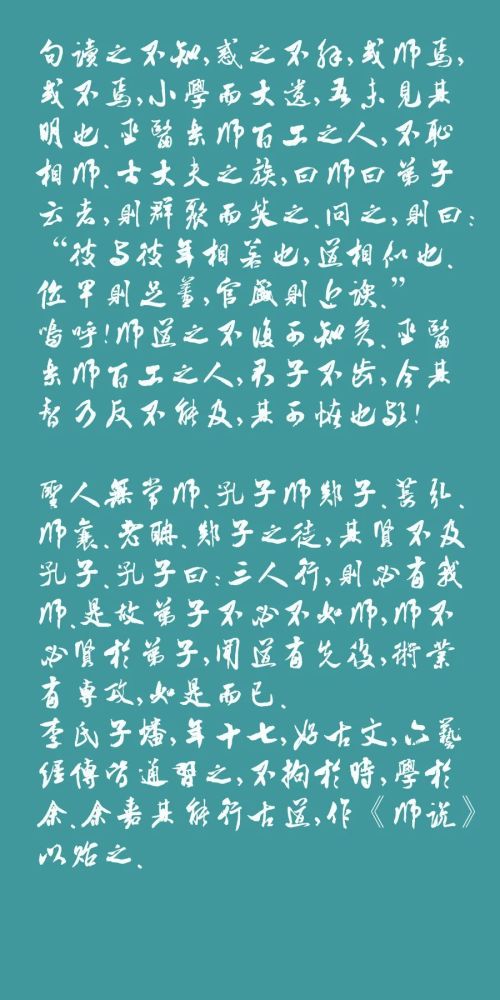 句讀之不知,惑之不解,或师焉,
或不焉,小學而大遗,吾未見其
明也、巫醫樂师百工之人,不恥
相师、士大夫之族,曰师曰弟子
云者,則群聚而笑之、问之,則曰:
“彼与彼年相若也,道相似也、
位卑則足羞,官盛則近谀、”
嗚呼!师道之不復可知矣、巫醫
樂师百工之人,君子不齿,今其
智乃反不能及,其可怪也歟!
聖人無常师、孔子师郯子、苌弘、
师襄、老聃、郯子之徒,其賢不及
孔子、孔子曰:三人行,則必有我
师、是故弟子不必不如师,师不
必賢於弟子,闻道有先後,術業
有専攻,如是而已、
李氏子蟠,年十七,好古文,六藝
经傳皆通習之,不拘於時,學於
余、余嘉其能行古道,作《师说》
以贻之、